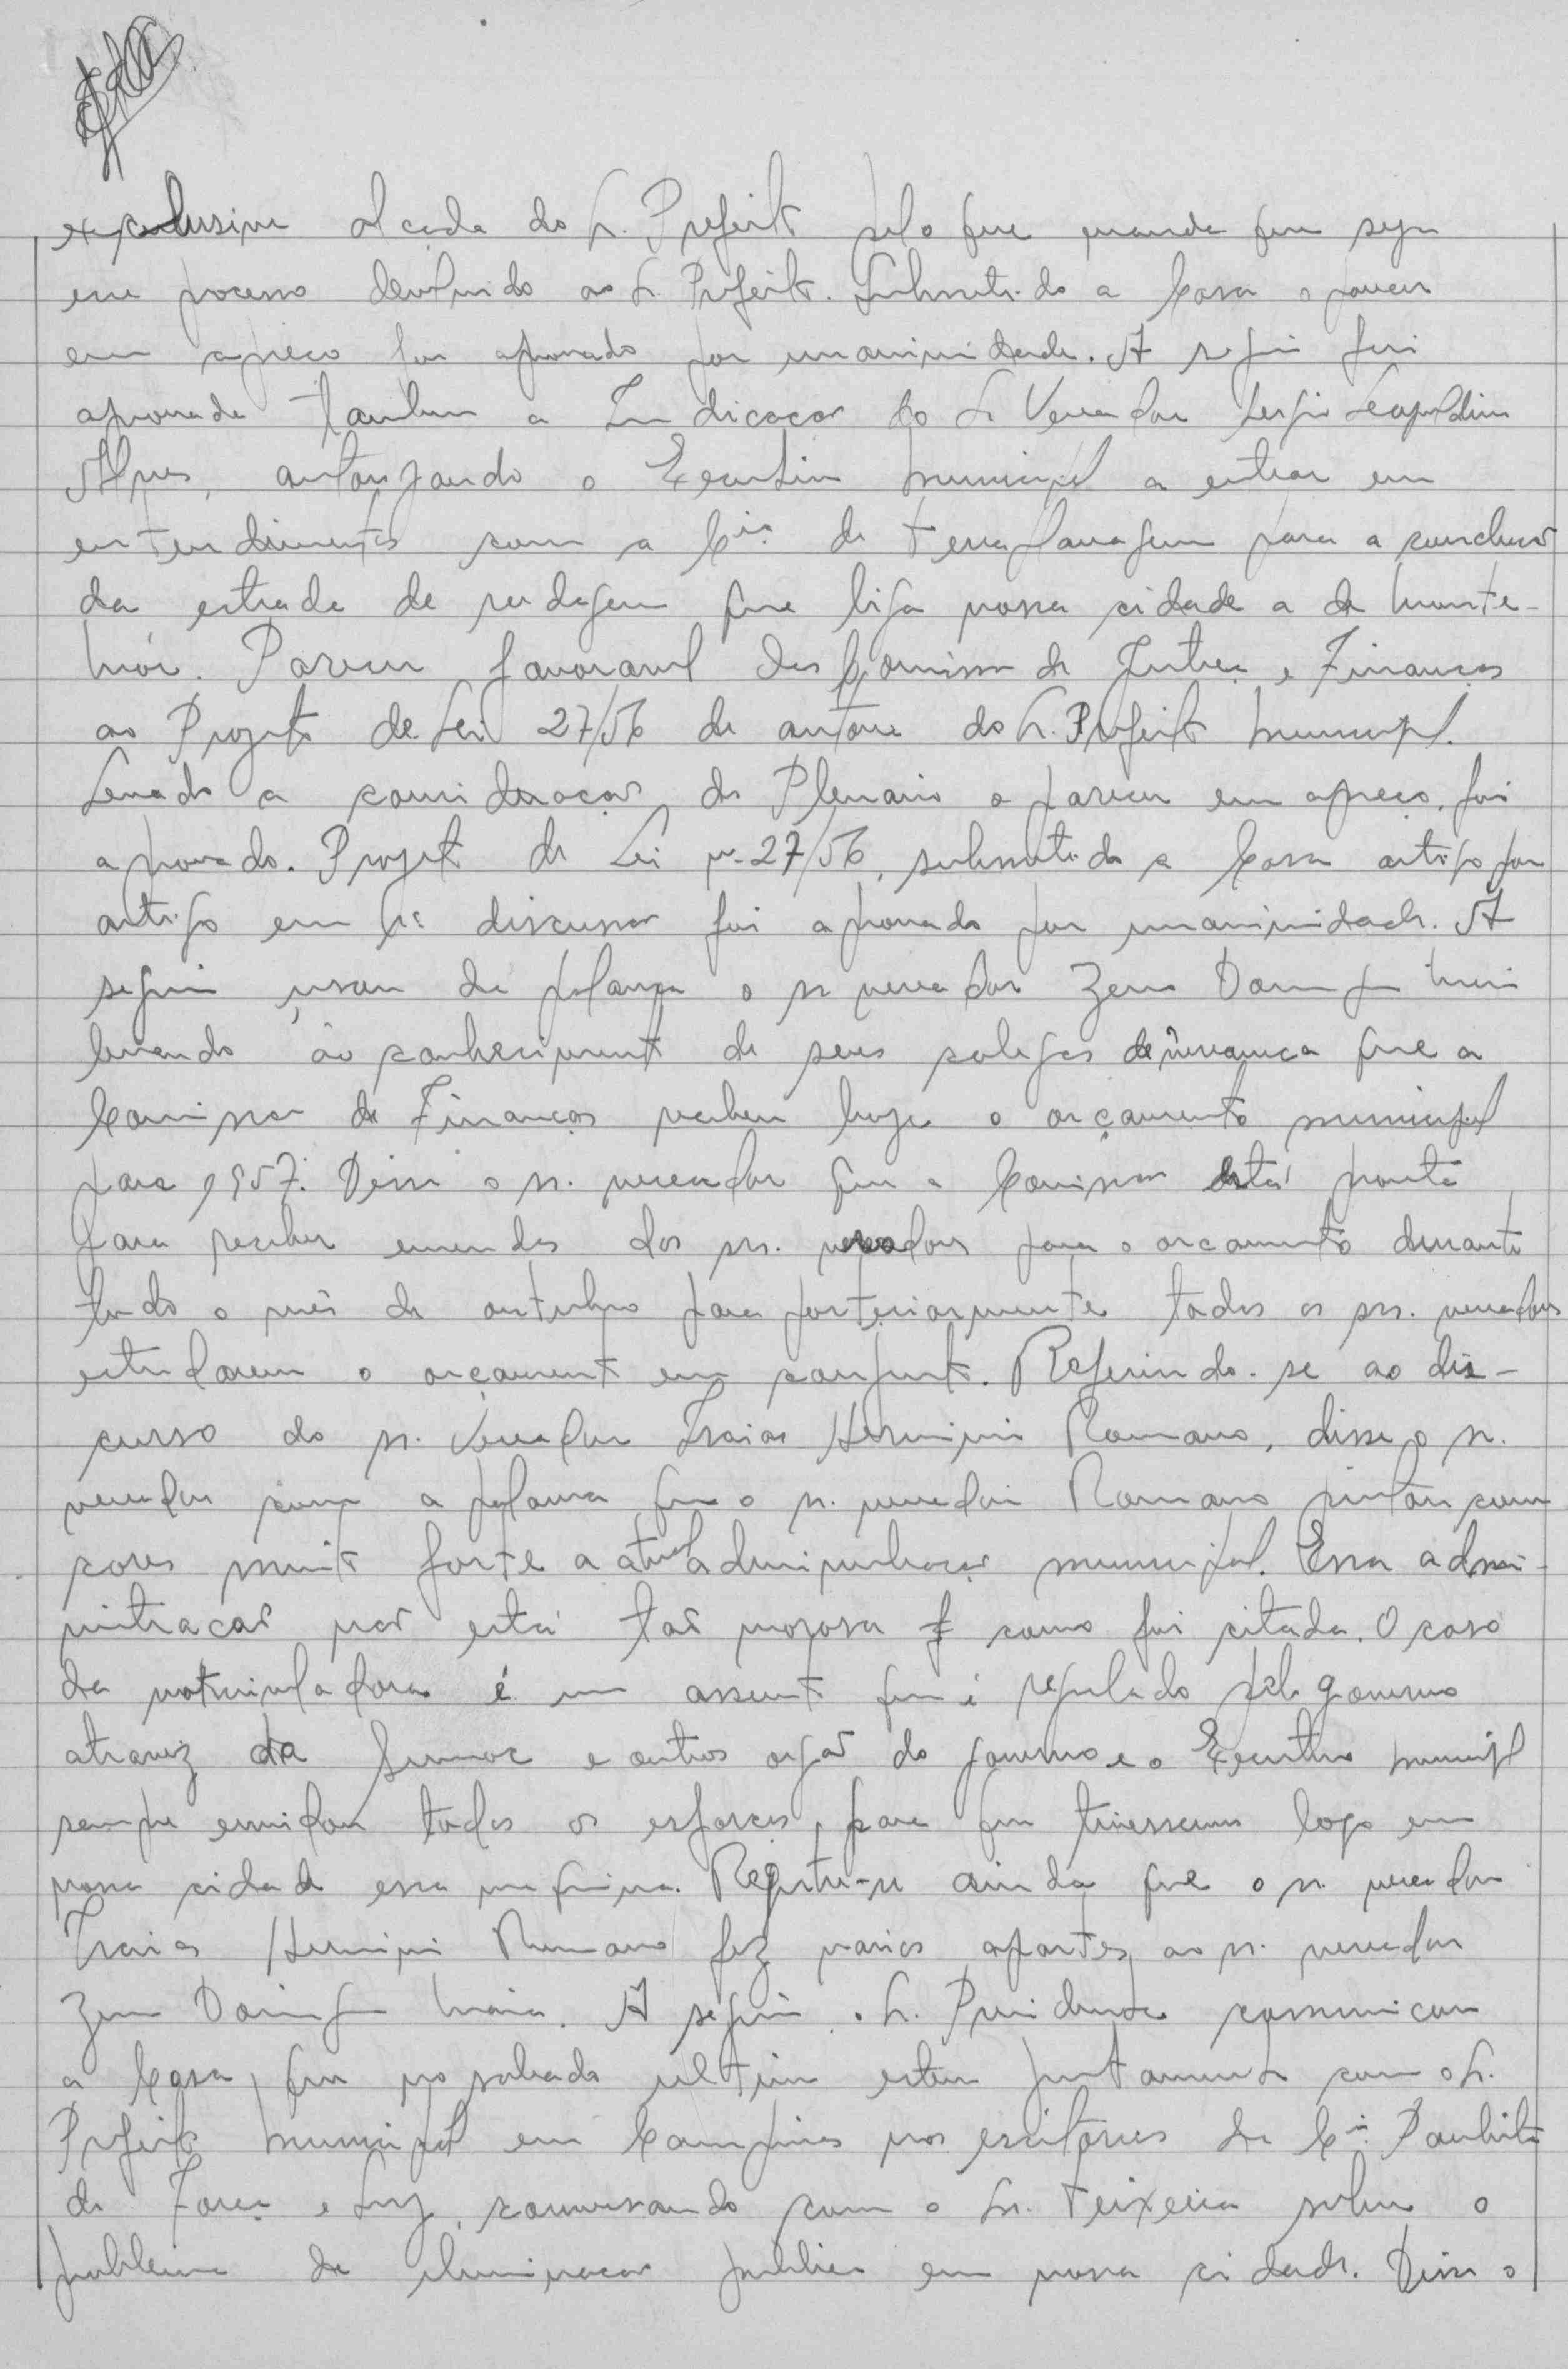 exclusiva alçada do Sr. Prefeito pelo que manda que seja
esse processo devolvido ao Sr. Prefeito. Submetido a Casa o parecer
em apreço foi aprovado por unanimidade. A seguir foi
aprovada tambem a Indicacao do Sr Vereador Sergio Leopoldino
Alves, autorizando o Executivo municipal a entrar em
entendimentos com a Cia. de terraplanagem para a conclusão
da estrada de rodagem que liga nossa cidade a de Monte-
Mór. Parecer favoravel das Comissoes de Justiça e Finanças
ao Projeto de Lei 27/56 de autoria do Sr. Prefeito Municipal.
Levado a consideracao do Plenario o parecer em apreço, foi
aprovado. Projeto de Lei nº 27/56, submetido a Casa artigo por
artigo em 1ª discussao foi aprovado por unanimidade. A
seguir usou da palavra o sr vereador Zeno Domingues Maia
levando ao conhecimento de seus colegas de vereança que a
Comissao de Finanças recebeu hoje o orçamento municipal
para 1957. Disse o sr. vereador que a Comissao está pronta
para receber emendas dos srs. vereadores para o orcamento durante
todo o mês de outubro para posteriormente todos os srs. vereadores
estudarem o orçamento em conjunto. Referindo-se ao dis-
curso do sr. Vereador Isaias Herminio Romano, disse o sr.
vereador com a palavra que o sr. vereador Romano pintou com
cores muito forte a atual administraçao municipal. Essa admi-
nistracao não está tão morosa como foi citada. O caso
da motoniveladora é um assunto que é regulado pelo governo
atravez da Sumoc e outros orgaos do governo e o Executivo municipal
sempre envidou todos os esforços, para que tivessemos logo em
nossa cidade essa maquina. Registre-se ainda que o sr. vereador
Isaias Herminio Romano fez varios apartes ao sr. vereador
Zeno Domingues Maia. A seguir o Sr. Presidente comunicou
a Casa, que no sabado ultimo esteve juntamente com o Sr.
Prefeito Municipal em Campinas nos escritorios da Cia. Paulista
de Força e Luz, conversando com o Sr. Teixeira sobre o
problema da iluminacao publica em nossa cidade. Disse o